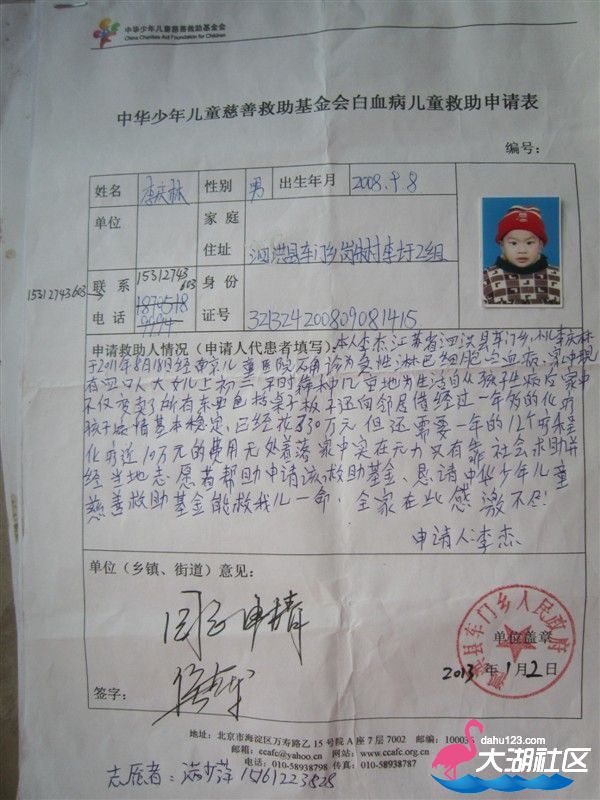 中华少年儿童慈善救助基金会
China Charities Aid Foundation for Children
中华少年儿童慈善救助基金会白血病儿童救助申请表
编号：
姓名 李庆林 性别 男 出生年月 2008.9.8
单位 家庭住址 泗洪县车门乡岗树村李圩2组
15312743603 联系电话 15312743603 身份证号 321324200809081415
申请救助人情况（申请人代患者填写）：本人李杰江苏省泗洪县车门乡，小儿李庆林
于2011年8月18日经南京儿童医院确诊为急性淋巴细胞白血病、家中现
有四口人大女儿上初三，平时靠种几亩地为生活自从孩子生病后家中
不仅变卖了所有东西包括桌子板子还向邻居借经过一年多的化疗
孩子病情基本稳定，已经花了30万元但还需要一年的12个疗程
化疗近10万元的费用无处着落家中实在无力又有靠社会求助并
经当地志愿者帮助申请该救助基金、恳请中华少年儿童
慈善救助基金能救我儿一命、全家在此感激不尽！
申请人：李杰
单位（乡镇、街道）意见：
同意申请
泗洪县车门乡人民政府
单位盖章
2013年1月2日
签字：
地址：北京市海淀区万寿路乙15号院A座7层7002 邮编：100036
邮箱：ccafc@yahoo.cn 网站：www.ccafc.org.cn
电话：010-58938798 传真：010-58938787
志愿者： 15161223828
dahu123.com
大湖社区